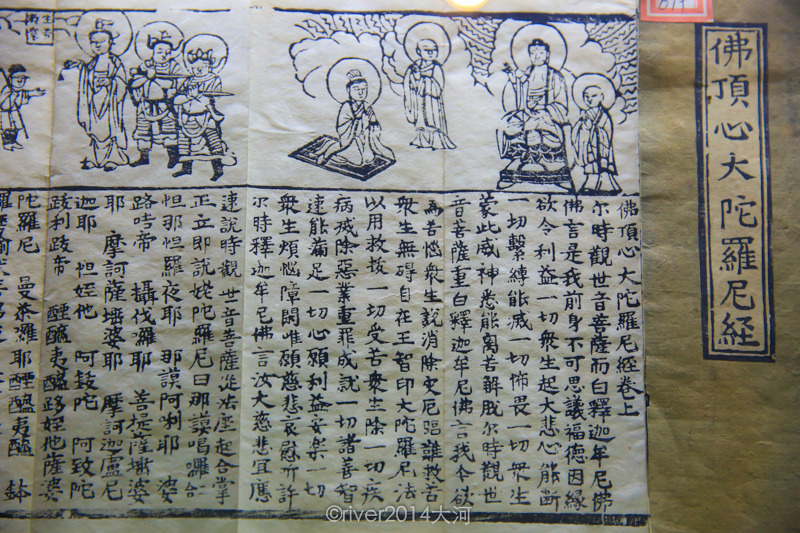 佛頂心大陀羅尼經
佛頂心大陀羅尼經卷上
尔時觀世音菩薩而白釋迦牟尼佛
佛言是我前身不可思議福德因緣
欲令利益一切衆生起大悲心能斷
一切繫縛能滅一切怖畏一切衆生
蒙此威神悉能离苦解脫尔時觀世
音菩薩重白釋迦牟尼佛言我今欲
為苦惱衆生說消除灾厄臨難救苦
衆生無碍自在王智印大陀羅尼法
以用救拔一切受苦衆生除一切疾
病滅除惡業重罪成就一切諸善智
速能滿足一切心願利益安樂一切
衆生煩惱障閡唯願慈悲哀愍所許
尔時釋迦牟尼佛言汝大慈悲宜應
速說時觀世音菩薩從法座起合掌
正立即說姥陀羅尼曰那謨喝囉合
怛那怛羅夜耶 那謨阿唎耶 婆
路咭帝 攝伐羅耶 菩提薩埵婆
耶 摩訶薩埵婆耶 摩訶迦盧尼
迦耶 怛姪他 阿鈸陀 阿鈸陀
跋利跋帝 醯醯夷醯跢姪他薩婆
陀羅尼 曼荼羅耶醯醯夷醯 鉢
©river2014大河